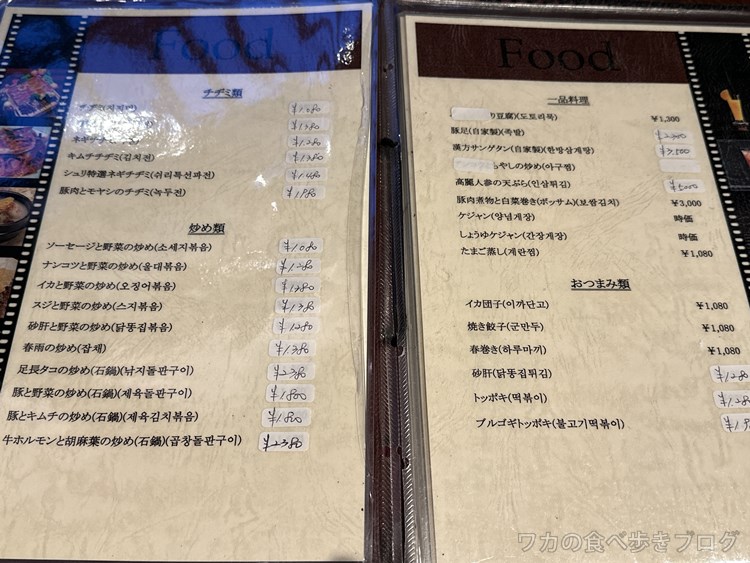 Food
チヂミ類
チヂミ(지지만)
¥1,080
¥1,280
ネギチヂミ
¥1,280
キムチチヂミ(김치전)
¥1,280
シュリ特選ネギチヂミ(쉬리특선파전)
¥1,480
豚肉とモヤシのチヂミ(녹두전)
¥1,980
炒め類
ソーセージと野菜の炒め(소세지볶음)
¥1,080
ナンコツと野菜の炒め(울대볶음)
¥1,280
イカと野菜の炒め(오징어볶음)
¥1,380
スジと野菜の炒め(스지볶음)
¥1,380
砂肝と野菜の炒め(닭똥집볶음)
¥1280
春雨の炒め(잡채)
¥1,380
足長タコの炒め(石鍋)(낙지돌판구이)
¥2,380
豚と野菜の炒め(石鍋)(제육돌판구이)
¥1,800
豚とキムチの炒め(石鍋)(제육김치볶음)
¥1,800
牛ホルモンと胡麻葉の炒め(石鍋)(곱창돌판구이)
¥2380
Food
一品料理
り豆腐)(도토리묵)
¥1,300
豚足(自家製)(족발)
漢方サンゲタン(自家製)(한방삼계탕)
¥3,500
もやしの炒め(아구찜)
高麗人参の天ぷら(인삼튀김)
¥5000
豚肉煮物と白菜巻き(ポッサム)(보쌈김치)
¥3,000
ケジャン(양념게장)
時価
しょうゆケジャン(간장게장)
時価
たまご蒸し(계란찜)
¥1,080
おつまみ類
イカ団子(이까단고)
¥1,080
焼き餃子(군만두)
¥1,080
春巻き(하루마끼)
¥1,080
砂肝(닭똥집튀김)
¥1,280
トッポキ(떡볶이)
¥1,28
プルゴギトッポキ(불고기떡볶이)
ワカの食べ歩きブログ